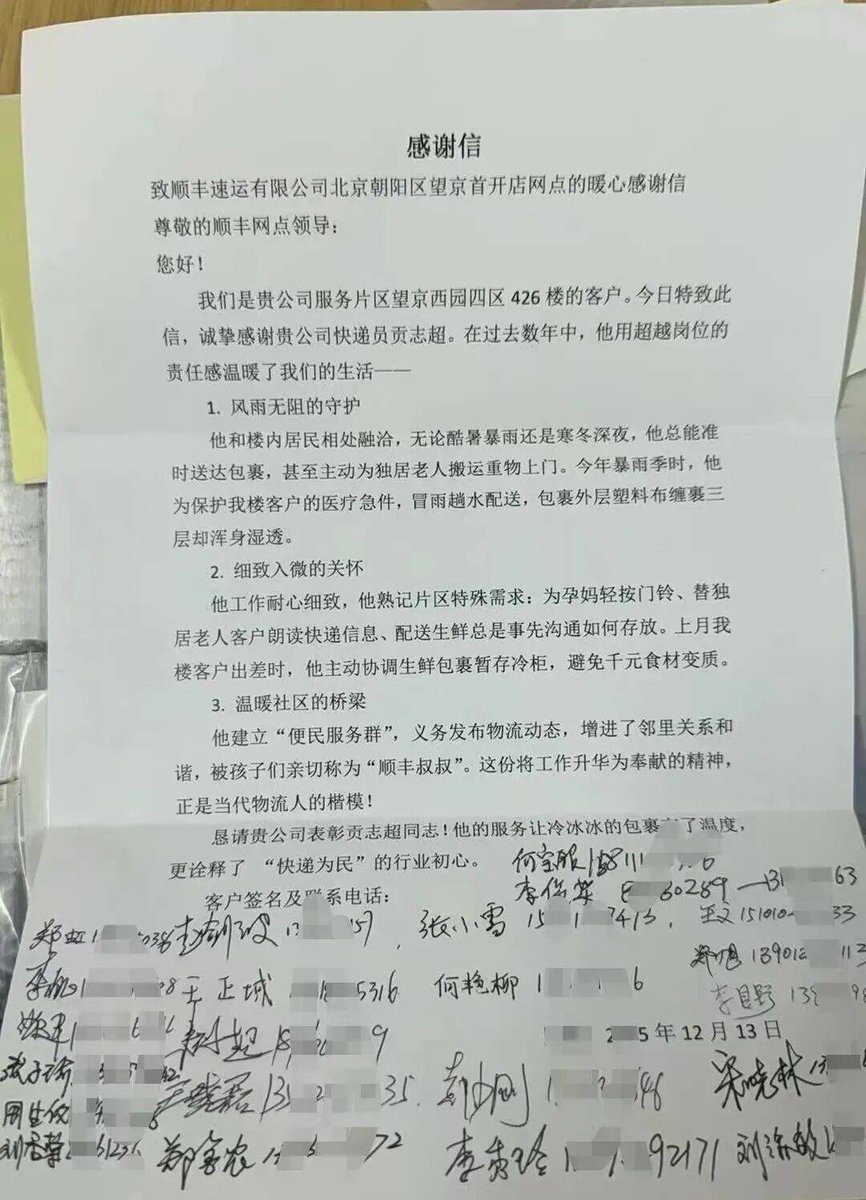 感谢信
致顺丰速运有限公司北京朝阳区望京首开店网点的暖心感谢信
尊敬的顺丰网点领导：
您好！
我们是贵公司服务片区望京西园四区 426 楼的客户。今日特致此
信，诚挚感谢贵公司快递员贡志超。在过去数年中，他用超越岗位的
责任感温暖了我们的生活——
1. 风雨无阻的守护
他和楼内居民相处融洽，无论酷暑暴雨还是寒冬深夜，他总能准
时送达包裹，甚至主动为独居老人搬运重物上门。今年暴雨季时，他
为保护我楼客户的医疗急件，冒雨趟水配送，包裹外层塑料布缠裹三
层却浑身湿透。
2. 细致入微的关怀
他工作耐心细致，他熟记片区特殊需求：为孕妈轻按门铃、替独
居老人客户朗读快递信息、配送生鲜总是事先沟通如何存放。上月我
楼客户出差时，他主动协调生鲜包裹暂存冷柜，避免千元食材变质。
3. 温暖社区的桥梁
他建立“便民服务群”，义务发布物流动态，增进了邻里关系和
谐，被孩子们亲切称为“顺丰叔叔”。这份将工作升华为奉献的精神，
正是当代物流人的楷模！
恳请贵公司表彰贡志超同志！他的服务让冷冰冰的包裹有了温度，
更诠释了 “快递为民”的行业初心。
客户签名及联系电话：
张小雪
于正城 何艳柳
5 年 12 月 13 日
宋晓林
李秀玲 92171